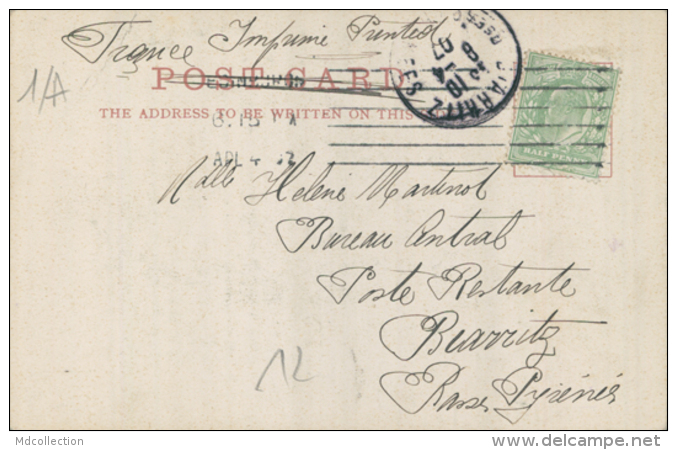 France Imprimé Printed
1/A
POST CARD
THE ADDRESS TO BE WRITTEN ON THIS
6.15
APL 4 07
BIARRITZ
HALF PENNY
Mdlle Helène Martinot
Bureau Central
Poste Restante
Biarritz
Basses Pyrénées
12
Mdcollection
www.delcampe.net